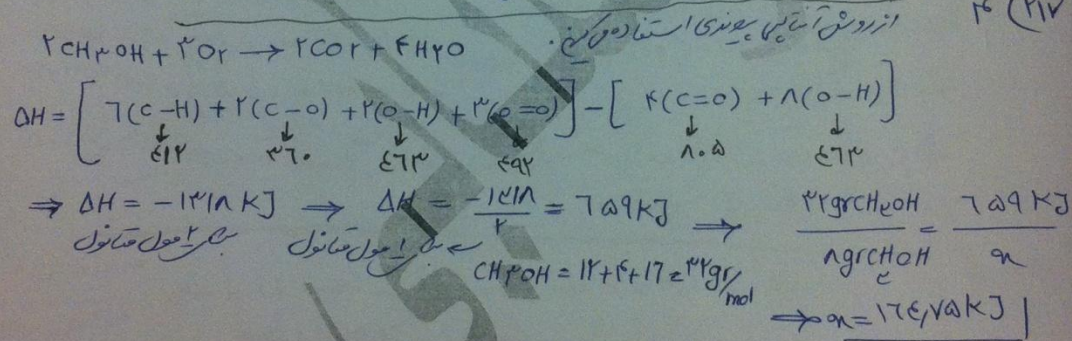 ۲۱۷) ۴
از روش آنتالپی پیوندی استفاده می‌کنیم.
۲CH۳OH + ۳O۲ → ۲CO۲ + ۴H۲O
ΔH = [ ۶(C-H) + ۲(C-O) + ۲(O-H) + ۳(O=O) ] - [ ۴(C=O) + ۸(O-H) ]
↓ ۴۱۲ ↓ ۳۶۰ ↓ ۴۶۳ ↓ ۴۹۲ ↓ ۸۰۵ ↓ ۴۶۳
⇒ ΔH = -۱۳۱۸ kJ → ΔH = -۱۳۱۸/۲ = ۶۵۹ kJ ⇒ ۳۲grCH۳OH/۸grCH۳OH = ۶۵۹ kJ/x
برای ۲ مول متانول برای ۱ مول متانول
CH۳OH = ۱۲+۴+۱۶ = ۳۲gr/mol
⇒ x = ۱۶۴,۷۵ kJ